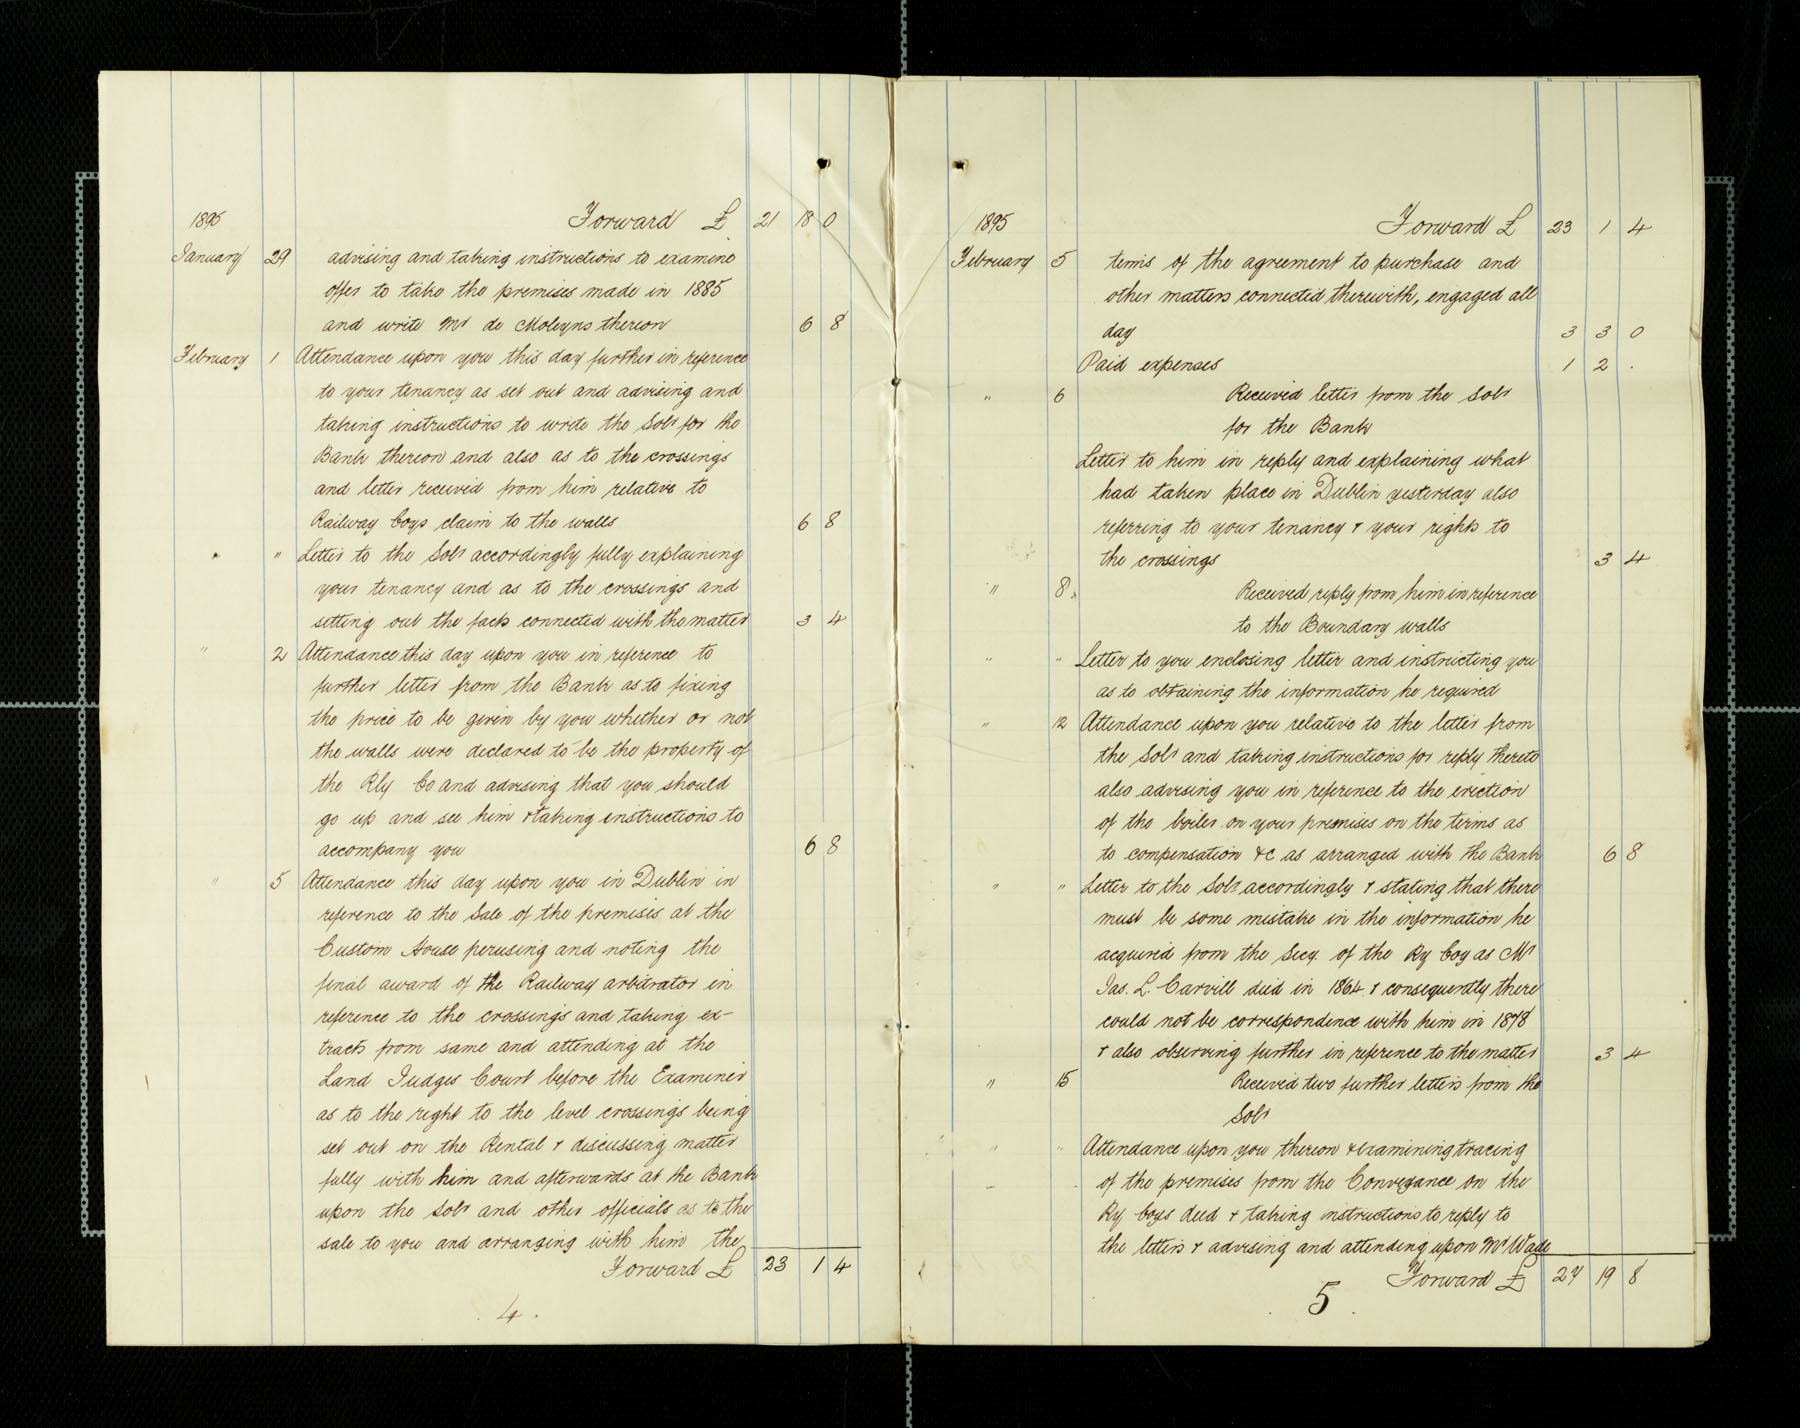 1895 Forward £ 21 18 0
January 29 advising and taking instructions to examine
offer to take the premises made in 1885
and write Mr de Moleyns thereon 6 8
February 1 Attendance upon you this day further in reference
to your tenancy as set out and advising and
taking instructions to write the Solr for the
Bank thereon and also as to the crossings
and letter received from him relative to
Railway Coys claim to the walls 6 8
" " Letter to the Solr accordingly fully explaining
your tenancy and as to the crossings and
setting out the facts connected with the matter 3 4
" 2 Attendance this day upon you in reference to
further letter from the Bank as to fixing
the price to be given by you whether or not
the walls were declared to be the property of
the Rly Co and advising that you should
go up and see him & taking instructions to
accompany you 6 8
" 5 Attendance this day upon you in Dublin in
reference to the Sale of the premises at the
Custom House perusing and noting the
final award of the Railway arbitrator in
reference to the crossings and taking ex-
tracts from same and attending at the
Land Judges Court before the Examiner
as to the right to the level crossings being
set out on the Rental & discussing matter
fully with him and afterwards at the Bank
upon the Solr and other officials as to the
sale to you and arranging with him the
Forward £ 23 1 4
4
1895 Forward £ 23 1 4
February 5 terms of the agreement to purchase and
other matters connected therewith, engaged all
day 3 3 0
Paid expenses 1 2 .
" 6 Received letter from the Solr
for the Bank
Letter to him in reply and explaining what
had taken place in Dublin yesterday also
referring to your tenancy & your rights to
the crossings 3 4
" 8 Received reply from him in reference
to the Boundary walls
" " Letter to you enclosing letter and instructing you
as to obtaining the information he required
" 12 Attendance upon you relative to the letter from
the Solr and taking instructions for reply thereto
also advising you in reference to the erection
of the boiler on your premises on the terms as
to compensation &c as arranged with the Bank 6 8
" " Letter to the Solr accordingly & stating that there
must be some mistake in the information he
acquired from the Secy. of the Ry Coy as Mr
Jas. L. Carvill died in 1864 & consequently there
could not be correspondence with him in 1878
& also observing further in reference to the matter 3 4
" 15 Received two further letters from the
Solr
" " Attendance upon you thereon & examining tracing
of the premises from the Conveyance on the
Ry Coys deed & taking instructions to reply to
the letters & advising and attending upon Mr Wade
Forward £ 27 19 8
5